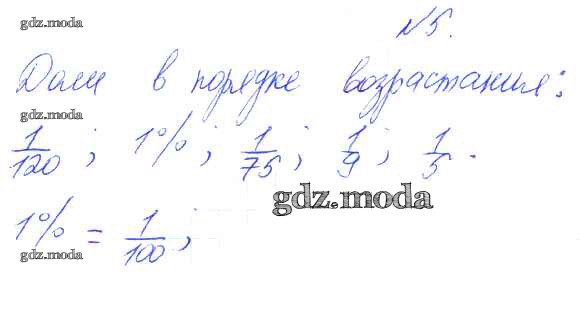 gdz.moda
№5.
Доли в порядке возрастания:
gdz.moda
1/120; 1%; 1/75; 1/9; 1/5.
gdz.moda
1% = 1/100;
gdz.moda